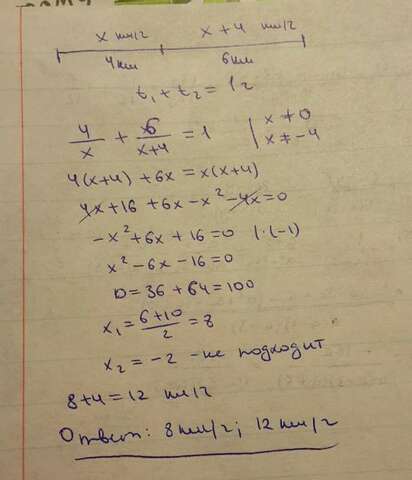 x км/ч x + 4 км/ч
4 км 6 км
t₁ + t₂ = 1 ч
4/x + 6/(x+4) = 1 | x ≠ 0
x ≠ -4
4(x+4) + 6x = x(x+4)
4x + 16 + 6x - x² - 4x = 0
-x² + 6x + 16 = 0 | · (-1)
x² - 6x - 16 = 0
D = 36 + 64 = 100
x₁ = (6+10)/2 = 8
x₂ = -2 - не подходит
8 + 4 = 12 км/ч
Ответ: 8 км/ч; 12 км/ч